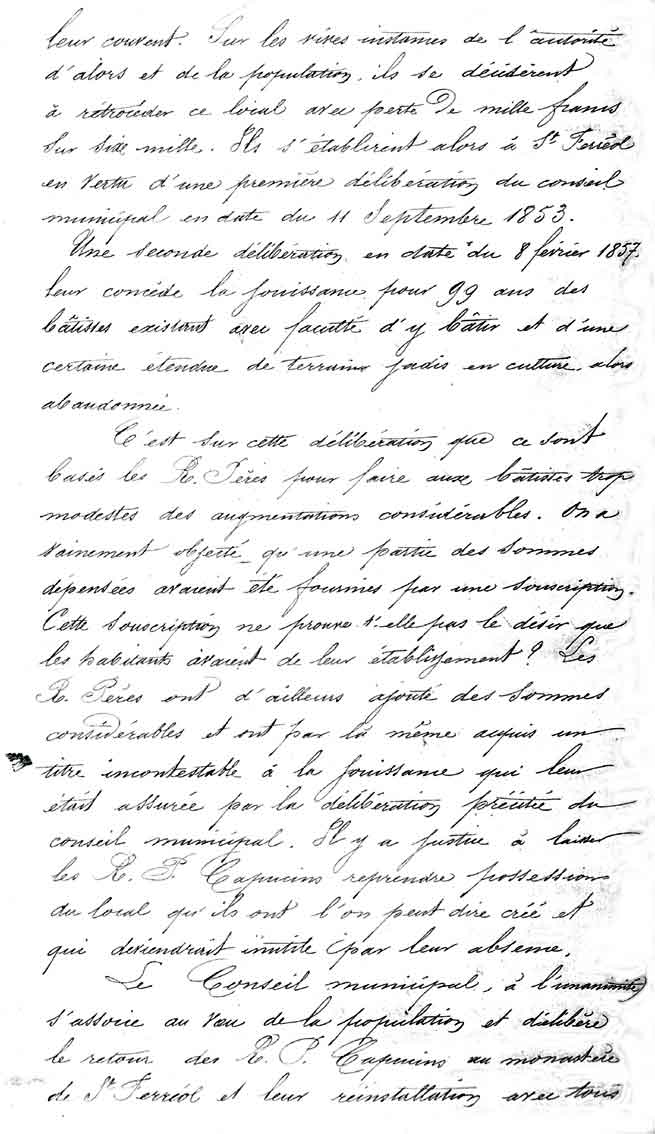 leur couvent. Sur les vives instances de l'autorité
d'alors et de la population, ils se décidèrent
à rétrocéder ce local avec perte De mille francs
Sur Six mille. Ils s'établirent alors à St Ferréol
en vertu d'une première délibération du conseil
municipal en date du 11 Septembre 1853.
Une seconde délibération en date du 8 février 1857.
leur concède la jouissance pour 99 ans des
bâtisses existant avec faculté d'y bâtir et d'une
certaine étendue de terrain jadis en culture, alors
abandonnée.
C'est sur cette délibération que ce sont
basés les R. Pères pour faire aux bâtisses trop
modestes des augmentations considérables. On a
vainement objecté qu'une partie des Sommes
dépensées avaient été fournies par une souscription.
Cette Souscription ne prouve t-elle pas le désir que
les habitants avaient de leur établissement ? Les
R. Pères ont d'ailleurs ajouté des Sommes
considérables et ont par là même acquis un
titre incontestable à la jouissance qui leur
était assurée par la délibération précitée du
conseil municipal. Il y a justice à laisser
les R. P. Capucins reprendre possession
du local qu'ils ont l'on peut dire créé et
qui deviendrait inutile par leur absence.
Le Conseil municipal, à l'unanimité
s'associe au vœu de la population et délibère
le retour des R. P. Capucins au monastère
de St Ferréol et leur réinstallation avec tous